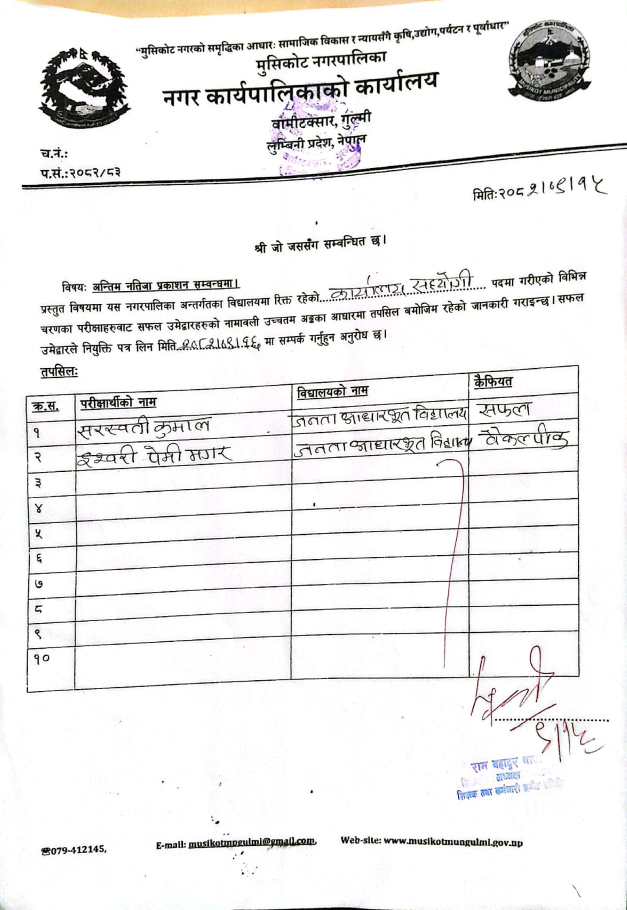 “मुसिकोट नगरको समृद्धिका आधारः सामाजिक विकास र न्यायसँगै कृषि,उद्योग,पर्यटन र पूर्वाधार”
मुसिकोट नगरपालिका
नगर कार्यपालिकाको कार्यालय
वामीटक्सार, गुल्मी
लुम्बिनी प्रदेश, नेपाल
च.नं.:
प.सं.:२०८२/८३
मितिः२०८२।०९।१५
श्री जो जससँग सम्बन्धित छ।
विषयः अन्तिम नतिजा प्रकाशन सम्बन्धमा।
प्रस्तुत विषयमा यस नगरपालिका अन्तर्गतका विद्यालयमा रिक्त रहेको कार्यालय सहयोगी पदमा गरीएको विभिन्न
चरणका परीक्षाहरुबाट सफल उमेद्वारहरुको नामावली उच्चतम अङ्कका आधारमा तपसिल बमोजिम रहेको जानकारी गराइन्छ। सफल
उमेद्वारले नियुक्ति पत्र लिन मिति २०८२।०९।१६ मा सम्पर्क गर्नुहुन अनुरोध छ।
तपसिलः
क्र.स. परीक्षार्थीको नाम विद्यालयको नाम कैफियत
१ सरस्वती कुमाल जनता आधारभूत विद्यालय सफल
२ इश्वरी पैमी मगर जनता आधारभूत विद्यालय वैकल्पीक
३
४
५
६
७
८
९
१०
९/१५
राम बहादुर
अध्यक्ष
शिक्षक तथा कर्मचारी छनौट समिति
☎079-412145, E-mail: musikotmngulmi@gmail.com, Web-site: www.musikotmungulmi.gov.np